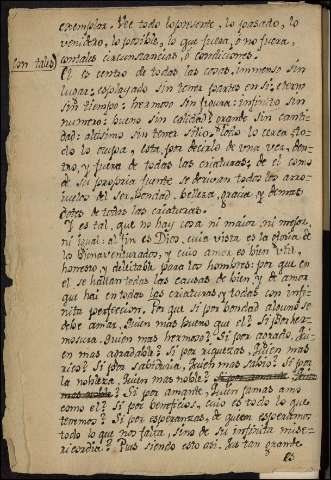 exemplar. Ve todo lo presente, lo pasado, lo
venidero, lo posible, lo que fuera, o no fuera,
(con tales) contales circunstancias, o condiciones.
El es centro de todas las cosas. immenso sin
lugar: esplayado sin tener partes en si: eterno
sin tiempo: hermoso sin figura: infinito sin
numero: bueno sin calidad: grande sin canti-
dad: altisimo sin tener sitio. Todo lo cerca, to-
do lo ocupa, esta, por decirlo de una vez, den-
tro, y fuera de todas las criaturas: de el como
de su propria fuente se derivan todos los arro-
iuelos del ser, bondad, belleza, gracia, y demas
dotes de todas las criaturas.
Y es tal, que no hay cosa ni maior, ni mejor,
ni igual: al fin es Dios, cuia vista es la gloria de
los Bienaventurados, y cuio amor es bien util,
honesto, y delectable para los hombres: por que en
el se hallan todas las causas de bien, y de amor
que hai en todas las criaturas, y todas con infi-
nita perfeccion. Por que si por bondad alguno se
debe amar, Quien mas bueno que el? Si por her-
mosura, Quien mas hermoso? Si por agrado, Qui-
en mas agradable? Si por riquezas, Quien mas
rico? Si por sabiduria, Quien mas sabio? Si por
la nobleza, Quien mas noble?
Si por amante, Quien jamas amo
como el? Si por beneficios, cuio es todo lo que
tenemos? Si por esperanzas, de quien esperamos
todo lo que nos falta, sino de su infinita mise-
ricordia? Pues siendo esto asi, Tan grande